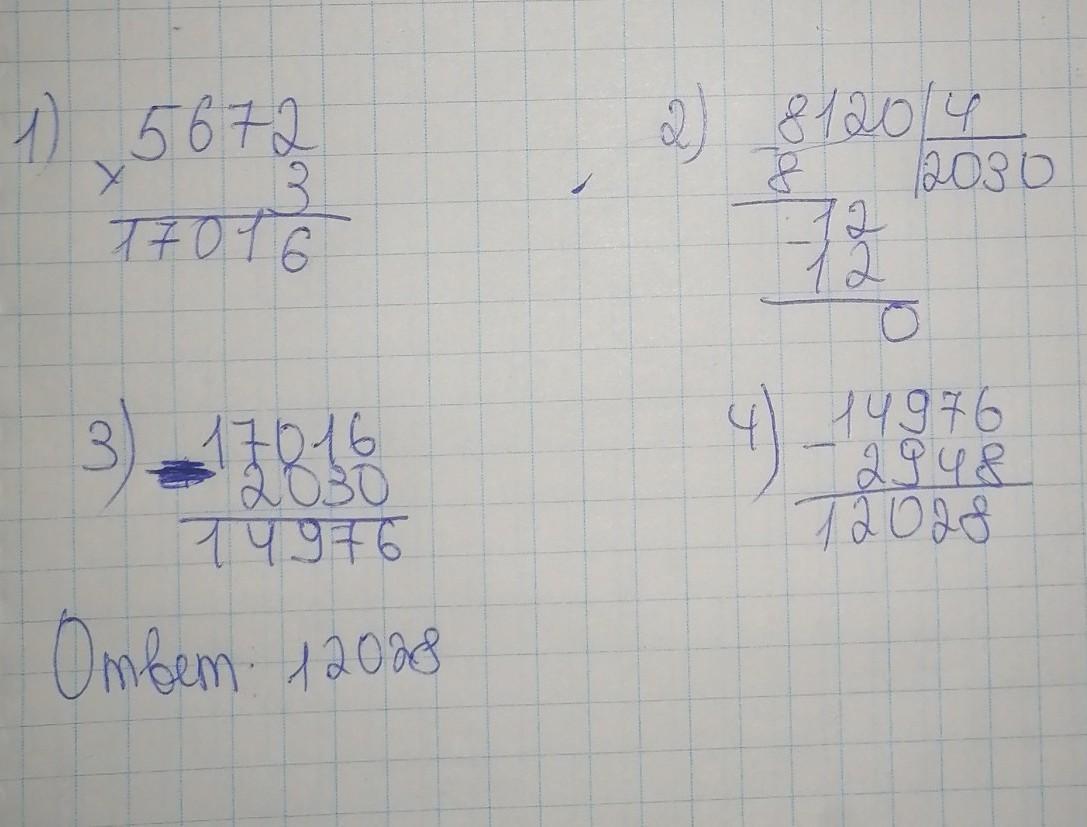 1) 5672
× 3
17016
2) 8120 | 4
- 8 2030
- 12
12
0
3) - 17016
2030
14976
4) - 14976
2948
12028
Ответ: 12028